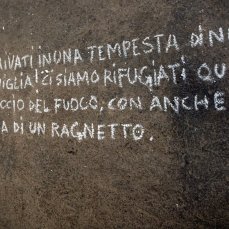 IVATI IN UNA TEMPESTA DI N
IGLIA! CI SIAMO RIFUGIATI QU
CCIO DEL FUOCO, CON ANCHE
A DI UN RAGNETTO.